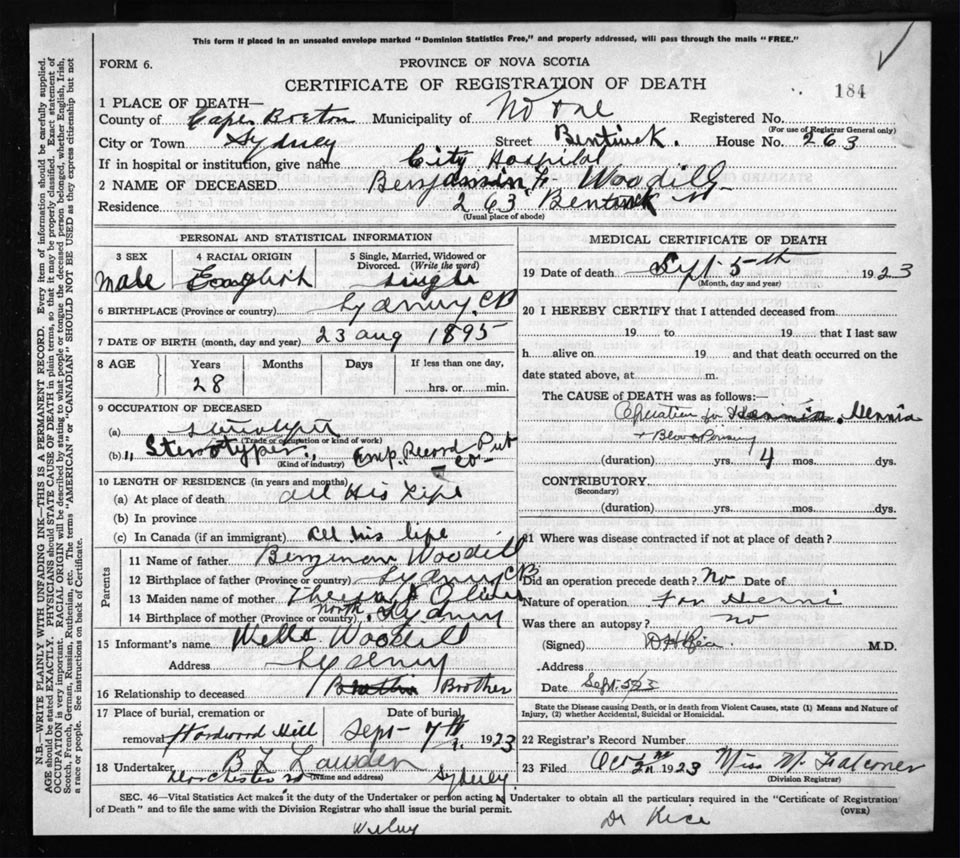 This form if placed in an unsealed envelope marked "Dominion Statistics Free," and properly addressed, will pass through the mails "FREE."
FORM 6.
PROVINCE OF NOVA SCOTIA
CERTIFICATE OF REGISTRATION OF DEATH
184
1 PLACE OF DEATH—
County of Cape Breton Municipality of No one Registered No.
(For use of Registrar General only)
City or Town Sydney Street Bentinck. House No. 263
If in hospital or institution, give name City Hospital
2 NAME OF DECEASED Benjamin F. Woodill
Residence 263 Bentinck St
(Usual place of abode)
PERSONAL AND STATISTICAL INFORMATION
3 SEX
male
4 RACIAL ORIGIN
English
5 Single, Married, Widowed or Divorced. (Write the word)
single
6 BIRTHPLACE (Province or country) Sydney CB
7 DATE OF BIRTH (month, day and year) 23 aug 1895
8 AGE Years Months Days If less than one day,
28 hrs. or min.
9 OCCUPATION OF DECEASED
(a)
(Trade or occupation or kind of work)
(b) " Sterotyper. Emp. Record Pub Co
(Kind of industry)
10 LENGTH OF RESIDENCE (in years and months)
(a) At place of death all His Life
(b) In province
(c) In Canada (if an immigrant) all his life
Parents
11 Name of father Benjeman Woodill
12 Birthplace of father (Province or country) Sydney CB
13 Maiden name of mother
14 Birthplace of mother (Province or country) North Sydney
15 Informant's name Wells Woodill
Address Sydney
16 Relationship to deceased Brother
17 Place of burial, cremation or removal Hardwood Hill
Date of burial Sept 7th 1923
18 Undertaker
(Name and address) Sydney
MEDICAL CERTIFICATE OF DEATH
19 Date of death Sept 5th 1923
(Month, day and year)
20 I HEREBY CERTIFY that I attended deceased from
19 to 19 that I last saw
h alive on 19 and that death occurred on the
date stated above, at m.
The CAUSE of DEATH was as follows:
Operation for Hernia
+ Blood Poisoning
(duration) yrs. 4 mos. dys.
CONTRIBUTORY
(Secondary)
(duration) yrs. mos. dys.
21 Where was disease contracted if not at place of death?
Did an operation precede death? No Date of
Nature of operation For
Was there an autopsy? no
(Signed) M.D.
Address
Date Sept. 5/23
State the Disease causing Death, or in death from Violent Causes, state (1) Means and Nature of Injury, (2) whether Accidental, Suicidal or Homicidal.
22 Registrar's Record Number
23 Filed Oct 1923 Miss M. Falconer
(Division Registrar)
SEC. 46—Vital Statistics Act makes it the duty of the Undertaker or person acting as Undertaker to obtain all the particulars required in the "Certificate of Registration
of Death" and to file the same with the Division Registrar who shall issue the burial permit.
(OVER)
Dr Rice
N.B.—WRITE PLAINLY WITH UNFADING INK—THIS IS A PERMANENT RECORD. Every item of information should be carefully supplied.
AGE should be stated EXACTLY. PHYSICIANS should STATE CAUSE OF DEATH in plain terms, so that it may be properly classified. Exact statement of
OCCUPATION is very important. RACIAL ORIGIN will be described by stating to what people or tongue the deceased person belonged, whether English, Irish,
Scotch, French, German, Russian, Ruthenian, etc. The terms "AMERICAN" or "CANADIAN" SHOULD NOT BE USED as they express citizenship but not
a race or people. See instructions on back of Certificate.